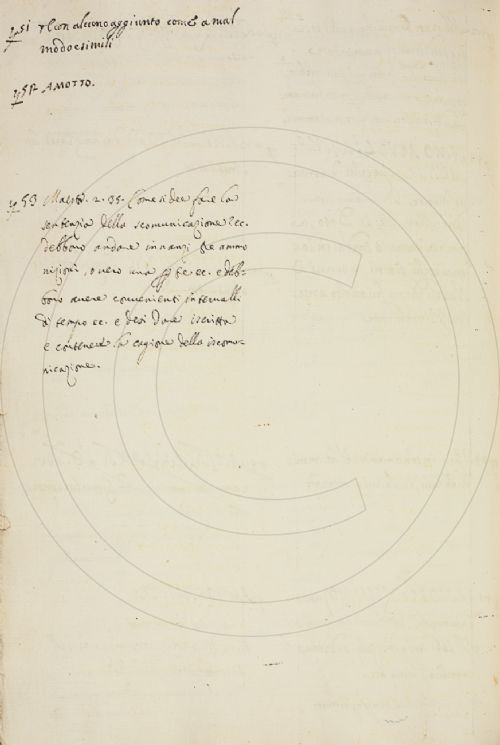 51 Con alcuno aggiunto come a mal
modo e simili
52 AMOTTO.
53 Maestr. 2. 35. Come si dee fare la
sentenzia della scomunicazione ec.
debbono andare innanzi tre ammo
nizioni, o vero una per tre ec. e deb-
bono avere convenienti intervalli
di tempo ec. e desi dare iscritta
e contenere la cagione della iscomu-
nicazione.